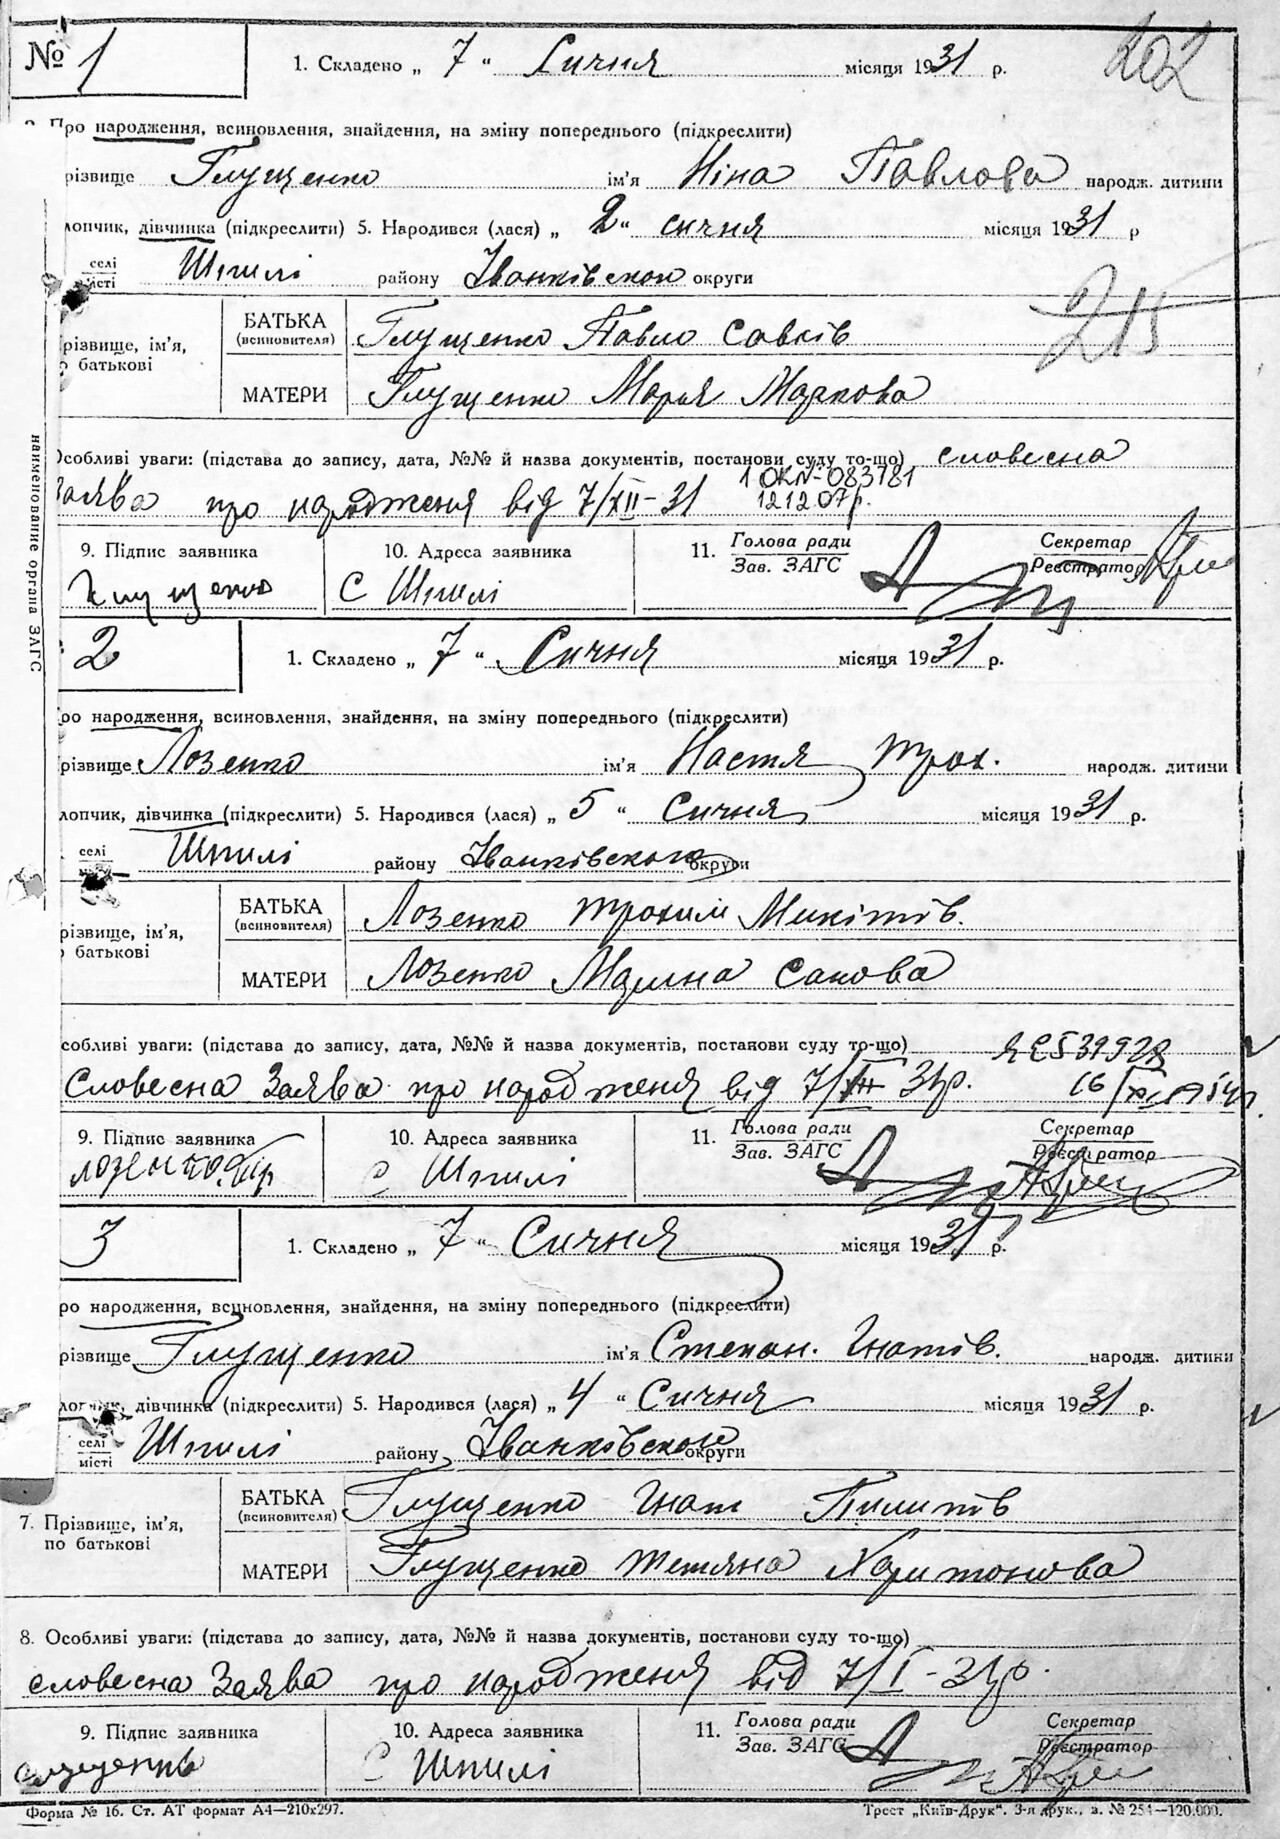 № 1 1. Складено „ 7 “ Сичня місяця 1931 р. 202
Про народження, всиновлення, знайдення, на зміну попереднього (підкреслити)
різвище Глущенко ім'я Ніна Павлова народж. дитини
лопчик, дівчинка (підкреслити) 5. Народився (лася) „ 2 “ сичня місяця 1931 р
селі Шпилі району Іванківскої округи
місті
215
БАТЬКА Глущенко Павло Савків
(всиновителя)
різвище, ім'я,
о батькові
МАТЕРИ Глущенко Марья Маркова
Особливі уваги: (підстава до запису, дата, №№ й назва документів, постанови суду то-що) словесна
Заява про народженя від 7/XII-31 1 ОК № 083781
12 12 07р.
9. Підпис заявника 10. Адреса заявника 11. Голова ради Секретар
Зав. ЗАГС Реєстратор
С Шпилі
наименование органа ЗАГС
2 1. Складено „ 7 “ Сичня місяця 1931 р.
ро народження, всиновлення, знайдення, на зміну попереднього (підкреслити)
різвище Лозенко ім'я Настя Трох. народж. дитини
лопчик, дівчинка (підкреслити) 5. Народився (лася) „ 5 “ Сичня місяця 1931 р.
селі Шпилі району Іванківского округи
БАТЬКА Лозенко Трохим Микітів.
(всиновителя)
різвище, ім'я,
о батькові
МАТЕРИ Лозенко Марина Сакова
собливі уваги: (підстава до запису, дата, №№ й назва документів, постанови суду то-що)
Словесна Заява про народженя від 7/XII 31р.
9. Підпис заявника 10. Адреса заявника 11. Голова ради Секретар
Зав. ЗАГС Реєстратор
С Шпилі
3 1. Складено „ 7 “ Сичня місяця 1931 р.
ро народження, всиновлення, знайдення, на зміну попереднього (підкреслити)
різвище Глущенко ім'я Степан. Гнатів. народж. дитини
лопчик, дівчинка (підкреслити) 5. Народився (лася) „ 4 “ Сичня місяця 1931 р.
селі Шпилі району Іванківского округи
місті
БАТЬКА Глущенко Гнат Пилипів
(всиновителя)
7. Прізвище, ім'я,
по батькові
МАТЕРИ Глущенко Тетяна Харитонова
8. Особливі уваги: (підстава до запису, дата, №№ й назва документів, постанови суду то-що)
словесна Заява про народженя від 7/I-31р.
9. Підпис заявника 10. Адреса заявника 11. Голова ради Секретар
Зав. ЗАГС Реєстратор
С Шпилі
Форма № 16. Ст. АТ формат А4—210х297. Трест „Київ-Друк“. 3-я друк., з. № 254—120.000.